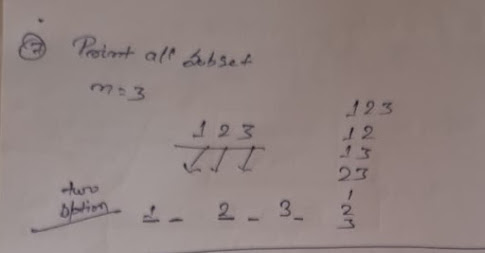 7 Print all Subset
n = 3
1 2 3
two option 1 _ 2 _ 3 _
1 2 3
1 2
1 3
2 3
1
2
3